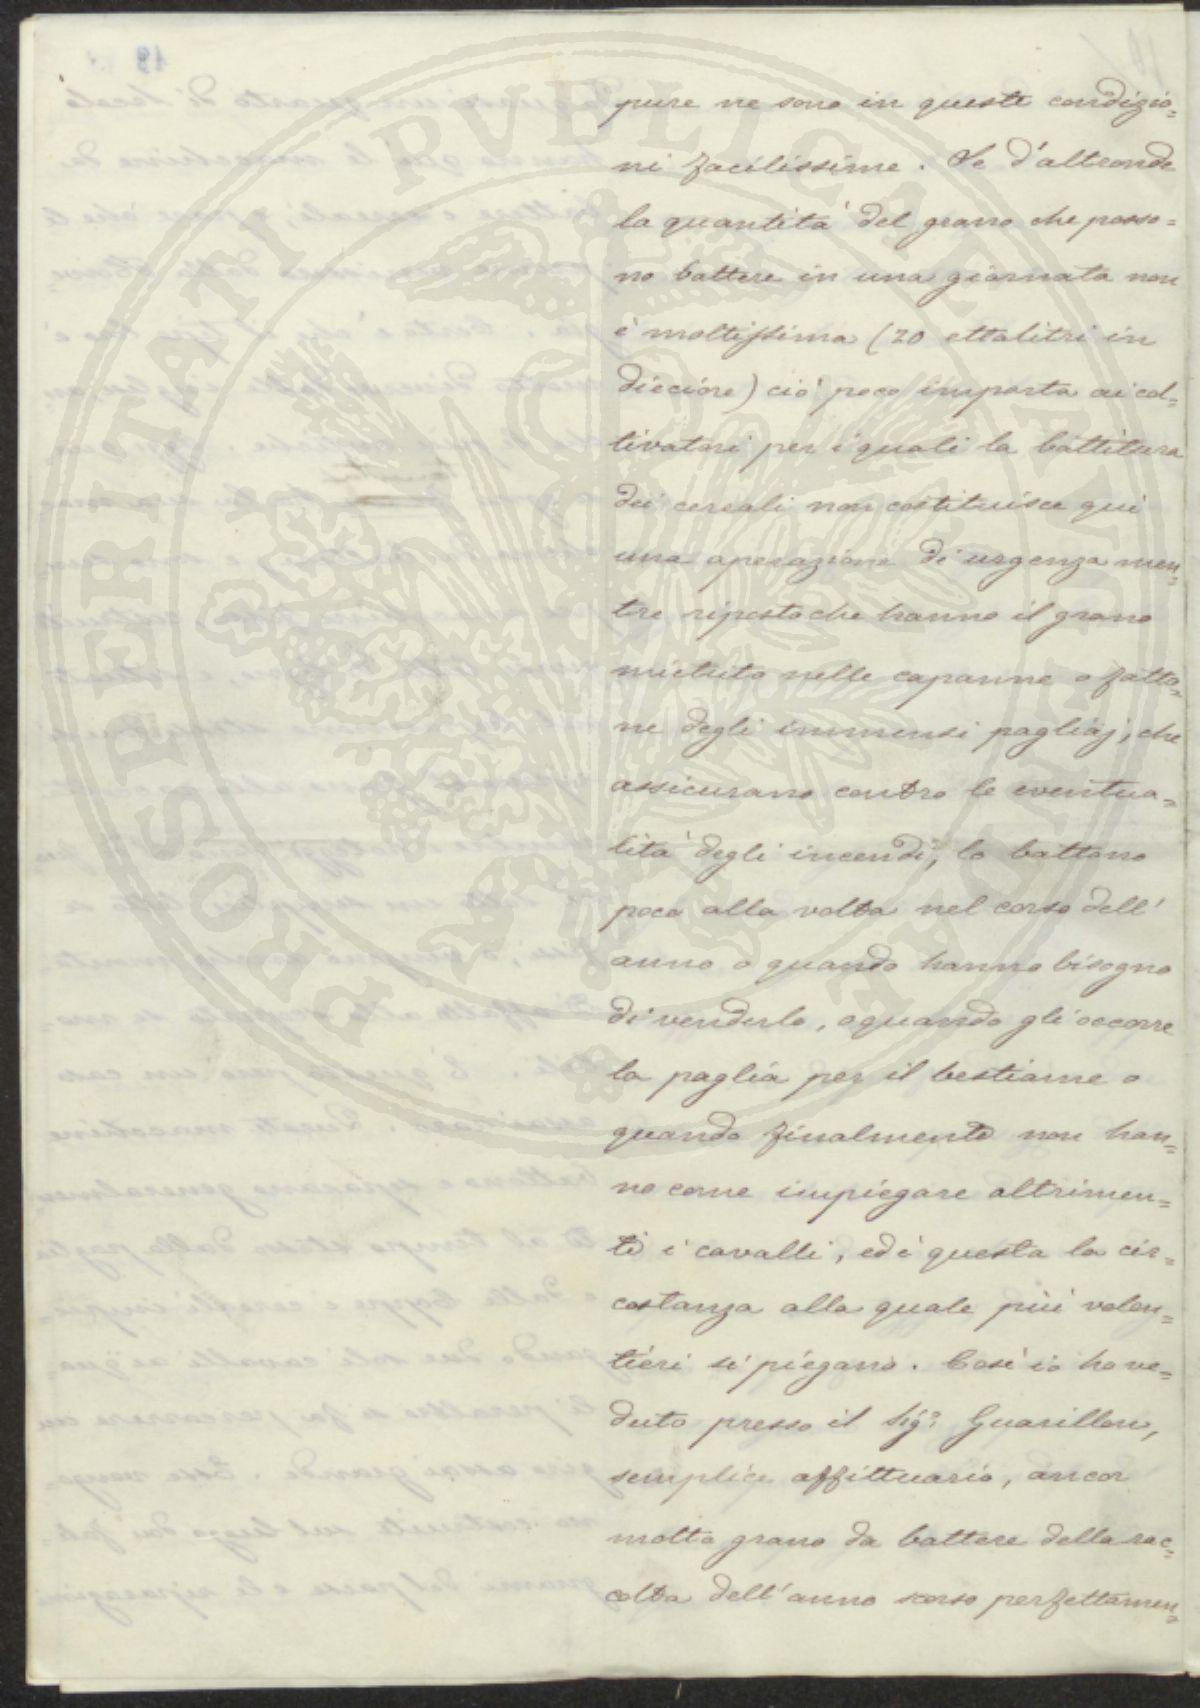 pure ne sono in queste condizio=
ni facilissime. Se d'altronde
la quantità del grano che posso=
no battere in una giornata non
è moltissima (20 ettolitri in
dieciore) ciò poco importa ai col=
tivatori per i quali la battitura
dei cereali non costituisce qui
una operazione di urgenza men=
tre riposto che hanno il grano
mietuto nelle capanne o fatto=
ne degli immensi pagliaj, che
assicurano contro le eventua=
lità degli incendi, lo battono
poco alla volta nel corso dell'
anno o quando hanno bisogno
di venderlo, o quando gli occorre
la paglia per il bestiame o
quando finalmente non han=
no come impiegare altrimen=
ti i cavalli, ed è questa la cir=
costanza alla quale più volen=
tieri si piegano. Così io ho ve=
duto presso il Sigr: Guarillon,
semplice affittuario, ancor
molto grano da battere della rac=
colta dell'anno scorso perfettamen=
PROSPERITATI PVBLICAE AVGENDAE